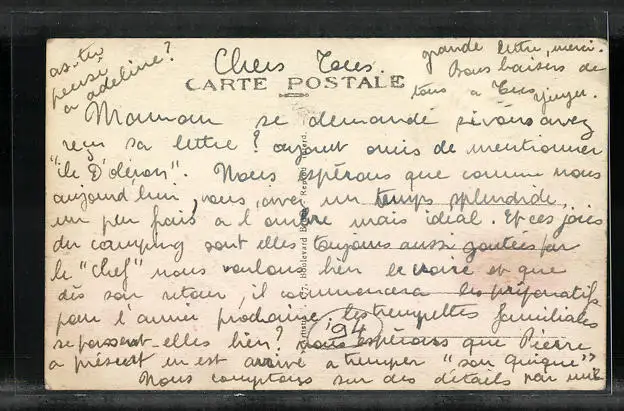 as-tu
pensé
a adeline?
Chers Tous.
CARTE POSTALE
Maman se demande si vous avez
reçu sa lettre? ayant omis de mentionner
"ile D'oléron". Nous espérons que comme nous
aujourd'hui, vous avez un temps splendide,
un peu frais a l'ombre mais idéal. Et ces joies
du camping sont elles toujours aussi goutées par
le "chef" nous voulons bien le croire et que
dès son retour, il commencera les préparatifs
pour l'année prochaine. les trempettes familiales
se passent-elles bien? nous espérons que Pierre
a présent en est arrivé a tremper "son quique"
Nous comptons sur des détails par une
grande lettre, merci.
Bons baisers de
tous a Tous
77, Boulevard
Interd.
194